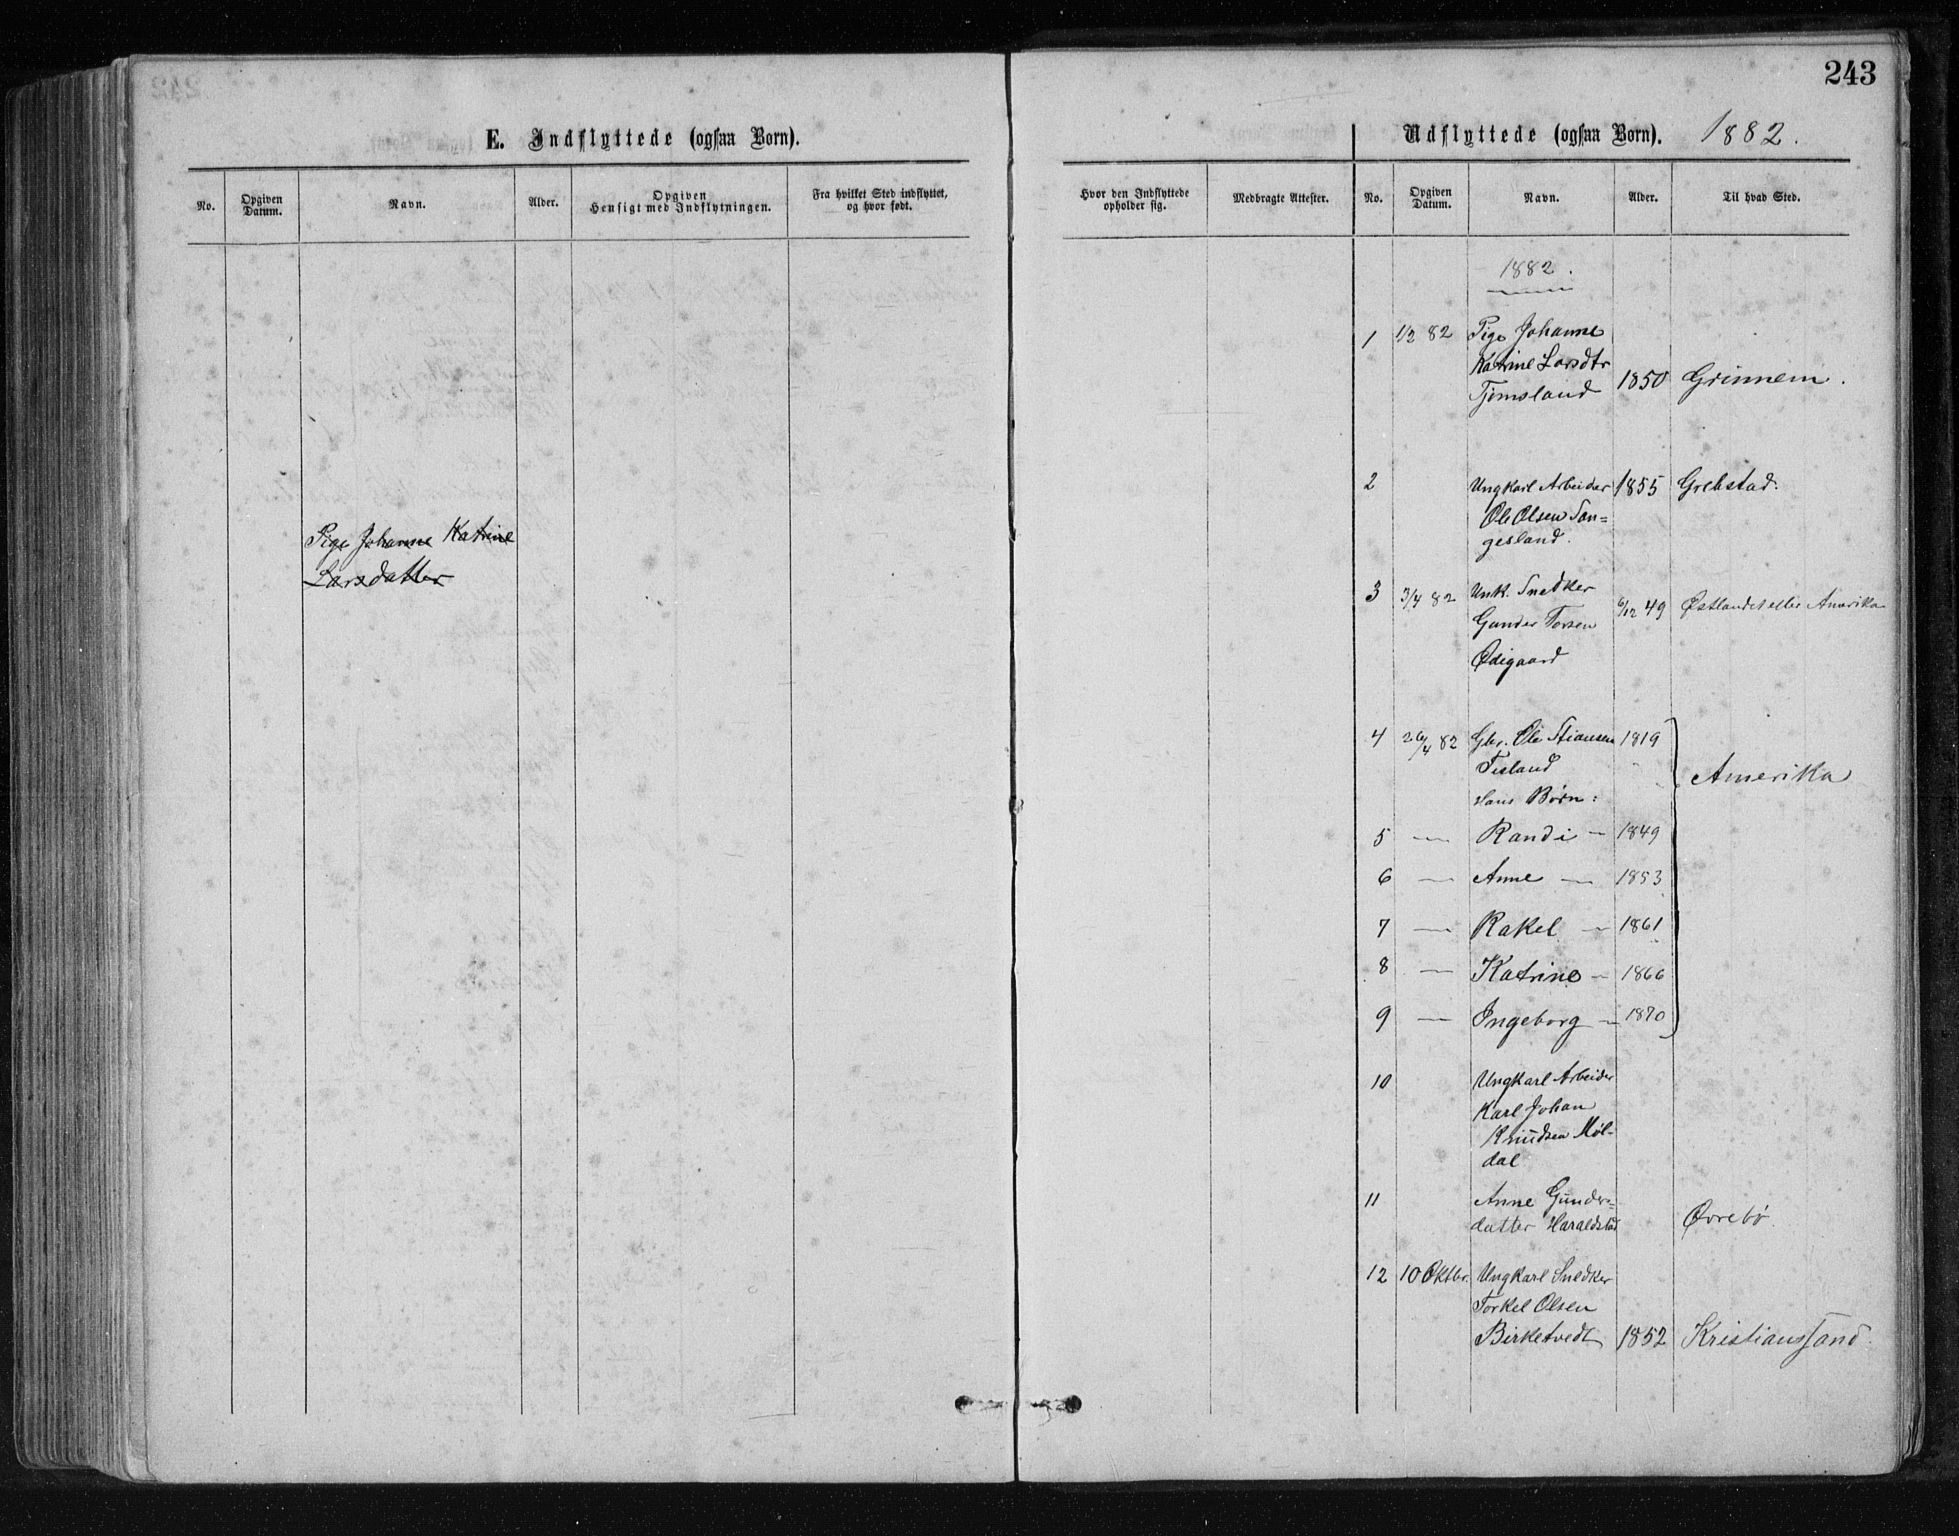 243
E. Indflyttede (ogsaa Born).
No.
Opgiven Datum.
Navn.
Alder.
Opgiven Hensigt med Indflytningen.
Fra hvilket Sted indflyttet, og hvor født.
Pige Johanne Katrine
Larsdatter
Udflyttede (ogsaa Born). 1882.
Hvor den Indflyttede opholder sig.
Medbragte Attester.
No.
Opgiven Datum.
Navn.
Alder.
Til hvad Sted.
1882.
1 1/2 82 Pige Johanne
Katrine Larsdtr
Tjomsland 1850 Grinnem.
2 Ungkarl Arbeider 1855 Grebstad.
Ole Olsen Son=
gesland.
3 3/4 82 Unk. Snedker
Gunder Torsen 6/12 49 Østlandet eller Amerika
Ødegaard
4 26/4 82 Gbr. Ole Stiansen 1819
Tisland
Amerika
Hans Børn:
5 — Randi — 1849
6 — Anne — 1853
7 — Rakel — 1861
8 — Katrine — 1866
9 — Ingeborg — 1870
10 Ungkarl Arbeider
Karl Johan
Knudsen Møl-
dal
11 Anne Gunders-
datter Haraldstad Øvrebø.
12 10 Oktbr. Ungkarl Snedker
Torkel Olsen
Birketvedt 1852 Kristianssand.